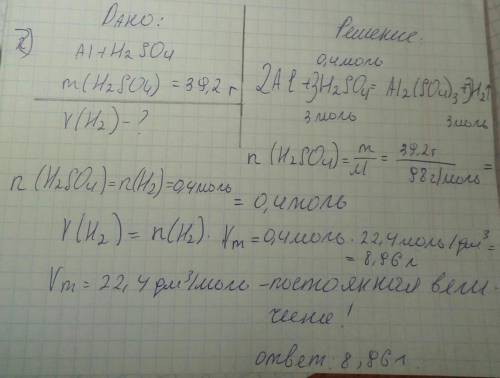 2)
Дано:
Al + H2SO4
m(H2SO4) = 39,2 г
V(H2) - ?
Решение:
0,4 моль
2Al + 3H2SO4 = Al2(SO4)3 + 3H2↑
3 моль 3 моль
n (H2SO4) = m/M = 39.2г / 98 г/моль =
= 0,4 моль
n (H2SO4) = n(H2) = 0,4 моль
V(H2) = n(H2) · Vm = 0,4 моль · 22,4 моль/дм³ =
= 8,96 л
Vm = 22,4 дм³/моль - постоянная вели-
чина!
ответ: 8,96 л.